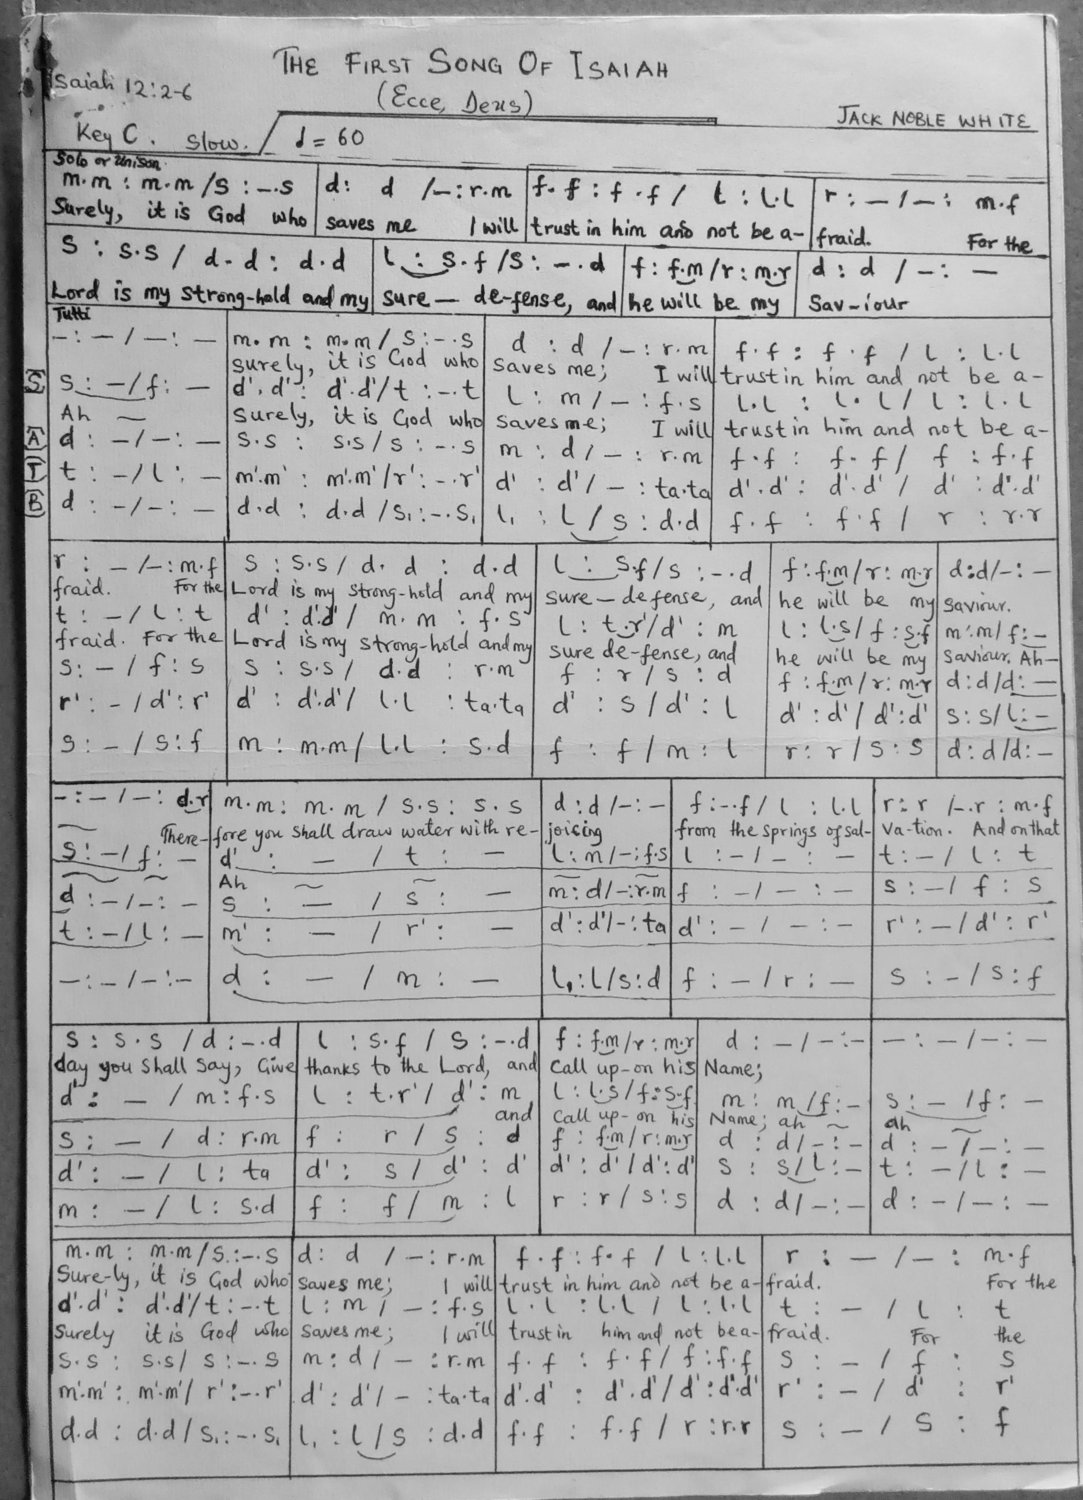 THE FIRST SONG OF ISAIAH
Isaiah 12:2-6
(Ecce, Deus)
JACK NOBLE WHITE
Key C. Slow. ♩ = 60
Solo or Unison.
m.m : m.m / s : -.s | d : d / - : r.m | f.f : f.f / l : l.l | r : - / - : m.f
Surely, it is God who | saves me I will | trust in him and not be a- | fraid. For the
s : s.s / d.d : d.d | l : s.f / s : -.d | f : f.m / r : m.r | d : d / - : -
Lord is my strong-hold and my | sure — de-fense, and | he will be my | Sav-iour
Tutti
- : - / - : - | m.m : m.m / s : -.s | d : d / - : r.m | f.f : f.f / l : l.l
surely, it is God who | saves me; I will | trust in him and not be a-
S s : - / f : - | d'.d' : d'.d' / t : -.t | l : m / - : f.s | l.l : l.l / l : l.l
Ah ~ | surely, it is God who | saves me; I will | trust in him and not be a-
A d : - / - : - | s.s : s.s / s : -.s | m : d / - : r.m | f.f : f.f / f : f.f
T t : - / l : - | m'.m' : m'.m' / r' : -.r' | d' : d' / - : ta.ta | d'.d' : d'.d' / d' : d'.d'
B d : - / - : - | d.d : d.d / s₁ : -.s₁ | l₁ : l / s : d.d | f.f : f.f / r : r.r
r : - / - : m.f | s : s.s / d.d : d.d | l : s.f / s : -.d | f : f.m / r : m.r | d : d / - : -
fraid. For the | Lord is my strong-hold and my | sure — defense, and | he will be my | saviour.
t : - / l : t | d' : d'.d' / m.m : f.s | l : t.r' / d' : m | l : l.s / f : s.f | m : m / f : -
fraid. For the | Lord is my strong-hold and my | sure de-fense, and | he will be my | saviour. Ah-
s : - / f : s | s : s.s / d.d : r.m | f : r / s : d | f : f.m / r : m.r | d : d / d : -
r' : - / d' : r' | d' : d'.d' / l.l : ta.ta | d' : s / d' : l | d' : d' / d' : d' | s : s / l : -
s : - / s : f | m : m.m / l.l : s.d | f : f / m : l | r : r / s : s | d : d / d : -
- : - / - : d.r | m.m : m.m / s.s : s.s | d : d / - : - | f : -.f / l : l.l | r : r / -.r : m.f
~ There- | fore you shall draw water with re- | joicing | from the springs of sal- | va-tion. And on that
s : - / f : - | d' : - / t : - | l : m / - : f.s | l : - / - : - | t : - / l : t
~ ~ | Ah ~ ~
d : - / - : - | s : - / s : - | m : d / - : r.m | f : - / - : - | s : - / f : s
t : - / l : - | m' : - / r' : - | d' : d' / - : ta | d' : - / - : - | r' : - / d' : r'
- : - / - : - | d : - / m : - | l₁ : l / s : d | f : - / r : - | s : - / s : f
s : s.s / d : -.d | l : s.f / s : -.d | f : f.m / r : m.r | d : - / - : - | - : - / - : -
day you shall say, Give | thanks to the Lord, and | call up-on his | Name;
d' : - / m : f.s | l : t.r' / d' : m | l : l.s / f : s.f | m : m / f : - | s : - / f : -
and | call up-on his | Name; ah ~ | ah ~
s : - / d : r.m | f : r / s : d | f : f.m / r : m.r | d : d / - : - | d : - / - : -
d' : - / l : ta | d' : s / d' : d' | d' : d' / d' : d' | s : s / l : - | t : - / l : -
m : - / l : s.d | f : f / m : l | r : r / s : s | d : d / - : - | d : - / - : -
m.m : m.m / s : -.s | d : d / - : r.m | f.f : f.f / l : l.l | r : - / - : m.f
Sure-ly, it is God who | saves me; I will | trust in him and not be a- | fraid. For the
d'.d' : d'.d' / t : -.t | l : m / - : f.s | l.l : l.l / l : l.l | t : - / l : t
surely it is God who | saves me; I will | trust in him and not be a- | fraid. For the
s.s : s.s / s : -.s | m : d / - : r.m | f.f : f.f / f : f.f | s : - / f : s
m'.m' : m'.m' / r' : -.r' | d' : d' / - : ta.ta | d'.d' : d'.d' / d' : d'.d' | r' : - / d' : r'
d.d : d.d / s₁ : -.s₁ | l₁ : l / s : d.d | f.f : f.f / r : r.r | s : - / s : f